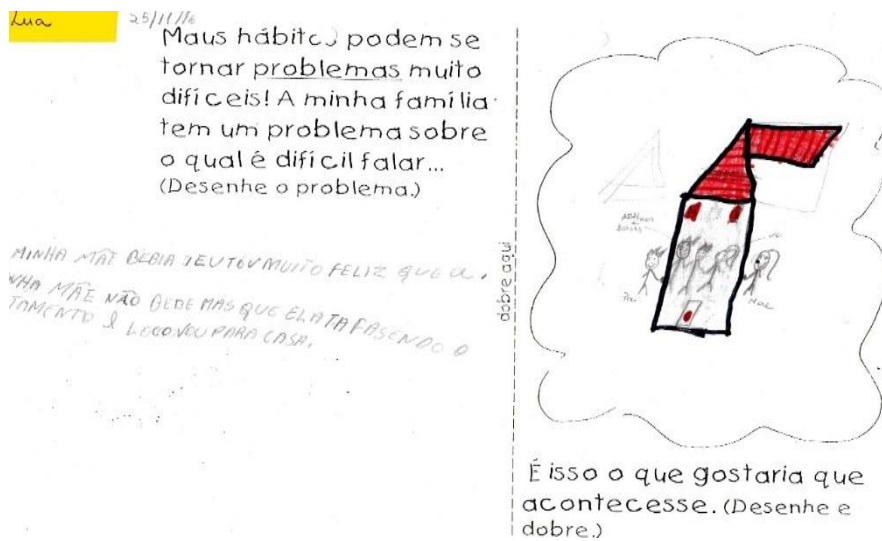 Lua
25/11/16
Maus hábitos podem se
tornar problemas muito
difíceis! A minha família
tem um problema sobre
o qual é difícil falar...
(Desenhe o problema.)
MINHA MÃE BEBIA I EU TOU MUITO FELIZ QUE A
NHA MÃE NÃO BEDE MAS QUE ELA TA FASENDO O
TAMENTO I LOGO VOU PARA CASA.
dobre aqui
Pai
Mae
É isso o que gostaria que
acontecesse. (Desenhe e
dobre.)